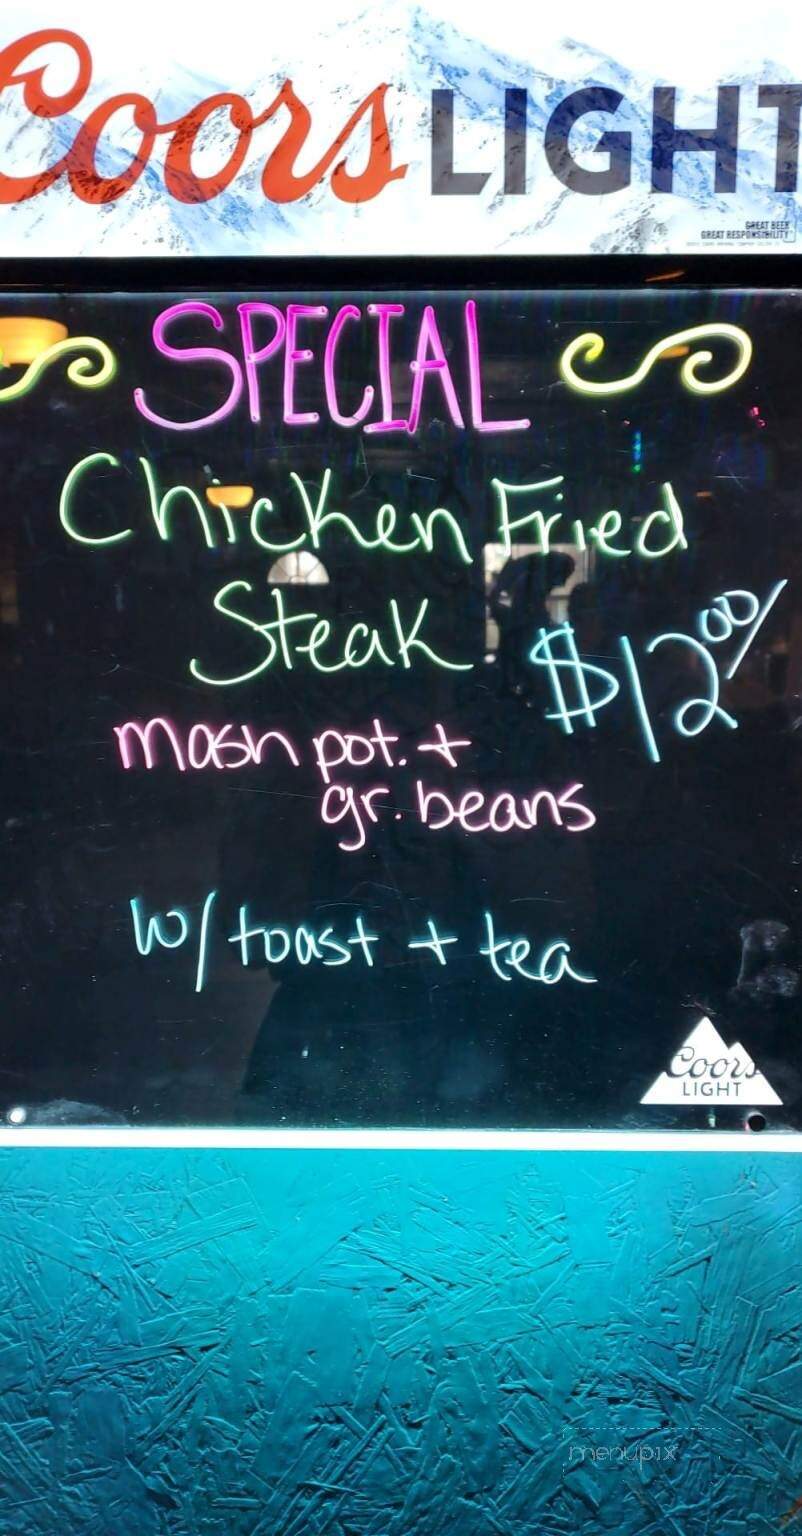 Coors LIGHT
GREAT BEER
GREAT RESPONSIBILITY
SPECIAL
Chicken Fried
Steak
$12.00/
mash pot. +
gr. beans
w/ toast + tea
Coors
LIGHT
menupix